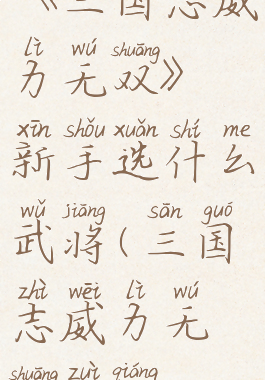 《三国志威
lì wú shuāng
力无双》
xīn shǒu xuǎn shí me
新手选什么
wǔ jiāng sān guó
武将(三国
zhì wēi lì wú
志威力无
shuāng zuì qiáng